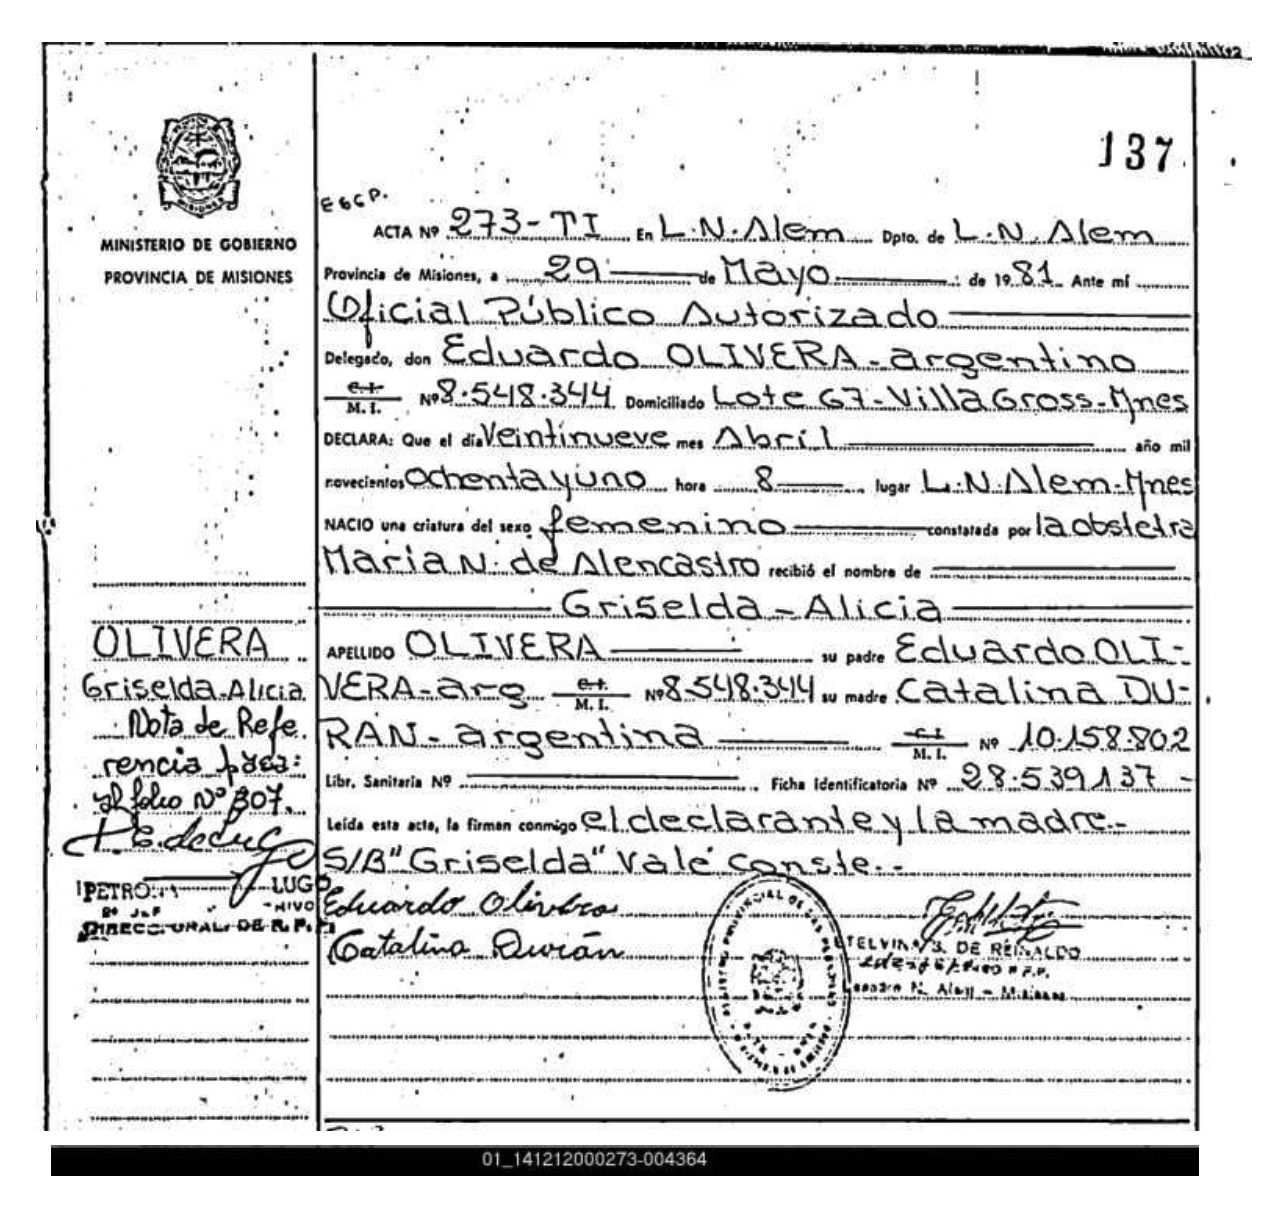 137
E66P.
ACTA Nº 273-TI En L.N.Alem Dpto. de L.N.Alem
MINISTERIO DE GOBIERNO
PROVINCIA DE MISIONES
Provincia de Misiones, a 29 de Mayo de 1981 Ante mí
Oficial Público Autorizado
Delegado, don Eduardo OLIVERA-argentino
C.I. M.I. Nº 8.548.344 Domiciliado Lote 67-Villa Gross-Mnes
DECLARA: Que el día Veintinueve mes Abril año mil
novecientos Ochenta y uno hora 8 lugar L.N.Alem-Mnes
NACIO una criatura del sexo femenino constatada por la obstetra
Maria N. de Alencastro recibió el nombre de
Griselda-Alicia
APELLIDO OLIVERA su padre Eduardo OLI-
VERA-arg C.I. M.I. Nº 8.548.344 su madre Catalina DU-
RAN-argentina C.I. M.I. Nº 10.158.802
Libr. Sanitaria Nº Ficha Identificatoria Nº 28.539.137-
Leída esta acta, la firman conmigo el declarante y la madre.-
S/B "Griselda" Vale conste.-
Eduardo Olivera
Catalina Durán
OLIVERA
Griselda-Alicia
Nota de Refe
rencia pasa:
al folio Nº 307.
PETRO LUGO
DE R.P.
REGISTRO PROVINCIAL DE LAS PERSONAS
ETELVINA S. DE REINALDO
Leandro N. Alem - Misiones
01_141212000273-004364